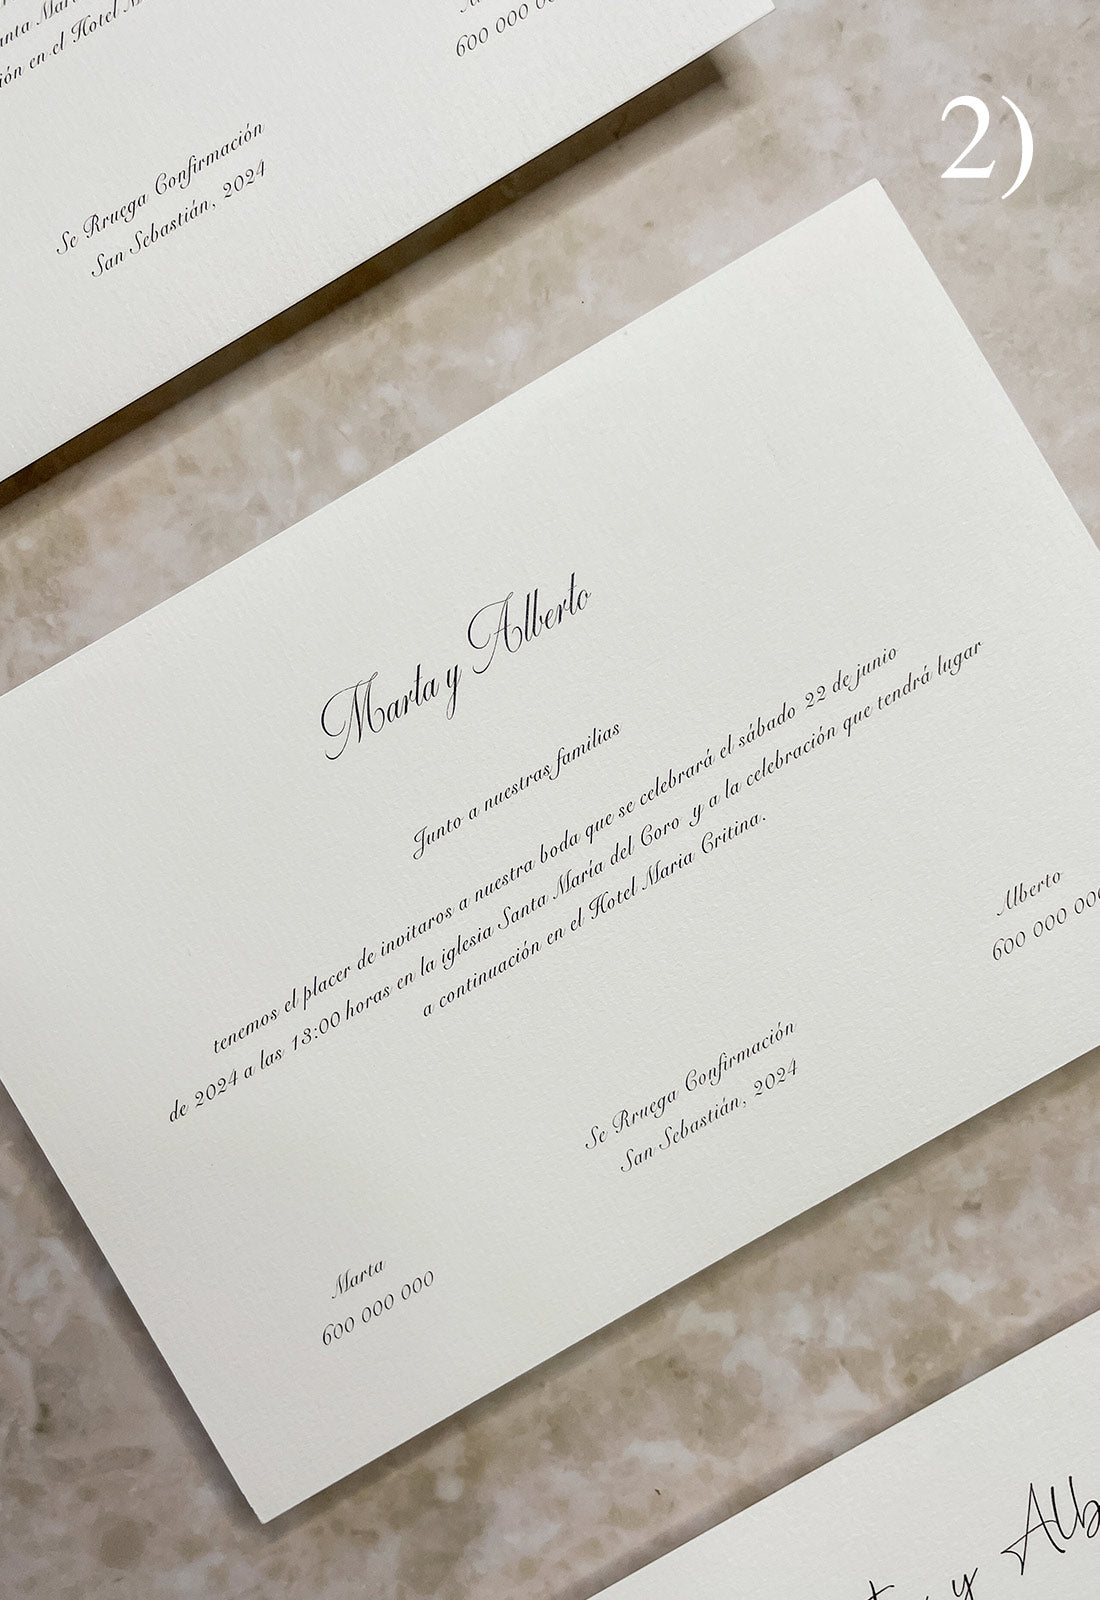 en el Hotel
600 000
Se Rruega Confirmación
San Sebastián, 2024
2)
Marta y Alberto
Junto a nuestras familias
tenemos el placer de invitaros a nuestra boda que se celebrará el sábado 22 de junio
de 2024 a las 13:00 horas en la iglesia Santa María del Coro y a la celebración que tendrá lugar
a continuación en el Hotel Maria Critina.
Alberto
600 000 000
Se Rruega Confirmación
San Sebastián, 2024
Marta
600 000 000
y Alb